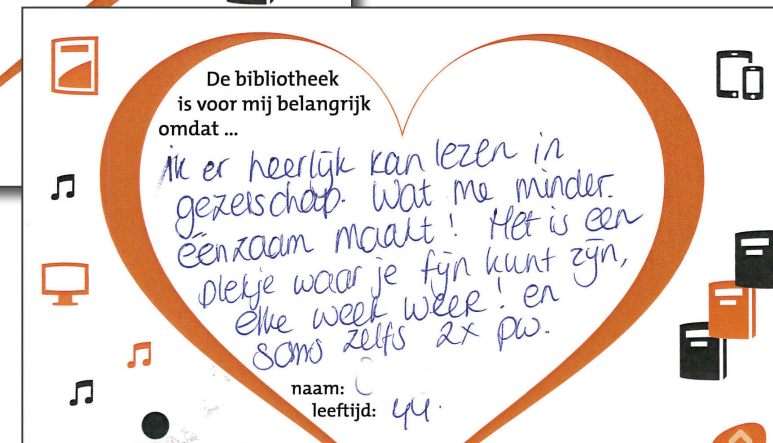 De bibliotheek
is voor mij belangrijk
omdat ...
ik er heerlijk kan lezen in
gezelschap. Wat me minder
éénzaam maakt! Het is een
plekje waar je fijn kunt zijn,
elke week weer! en
soms zelfs 2x pw.
naam:
leeftijd: 44.